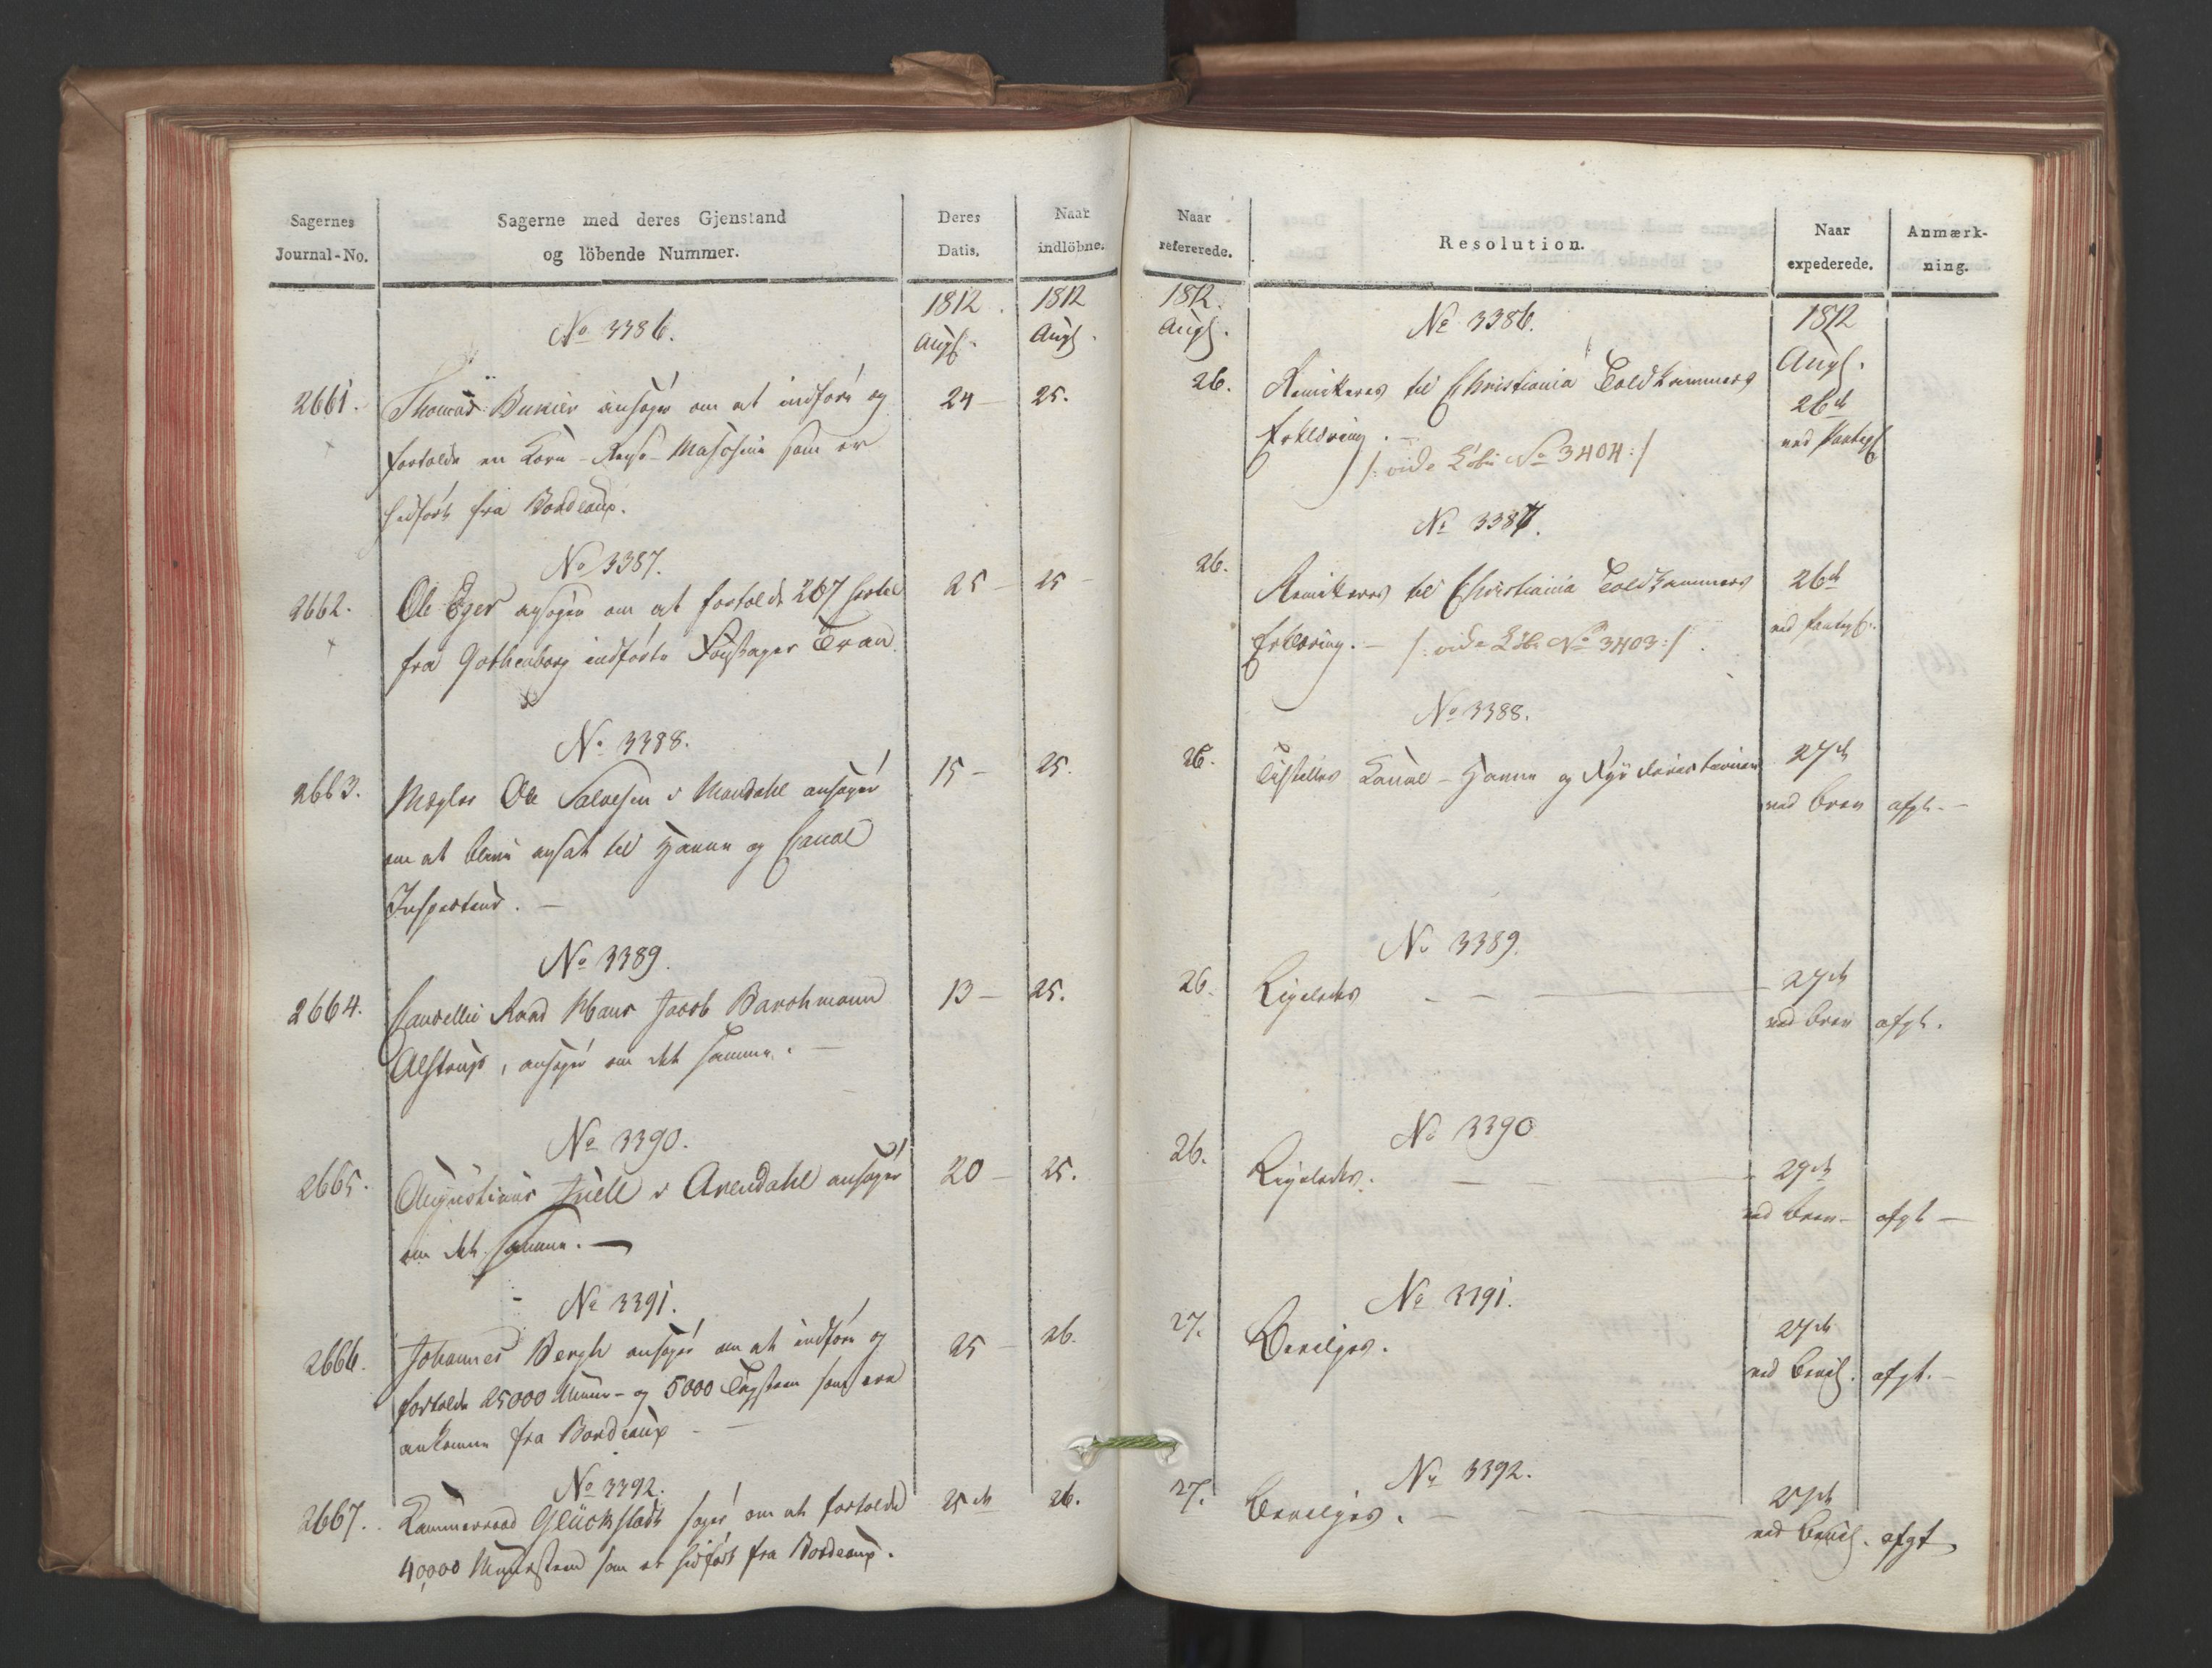 Sagernes
Journal-No.
Sagerne med deres Gjenstand
og löbende Nummer.
Deres
Datis.
Naar
indlöbne.
1812.
Augs.
1812
Augs.
No 3386.
2661. Thomas Bukier ansøger om at indføre og 24 — 25.
fortolde en Korn-Rense-Maschine som er
hidført fra Bordeaux.
No 3387.
2662. Ole Eger ansøger om at fortolde 267 hertil 25 — 25 —
fra Gothenborg indførte Foustager Tran.
No 3388.
2663. Mægler Ole Salvesen i Mandahl ansøger 15 — 25.
om at blive ansat til Havne og Canal
Inspecteur. —
No 3389.
2664. Cancellie Raad Hans Jacob Barchmann 13 — 25.
Alstrup, ansøger om det samme. —
No 3390.
2665. Augustinus Juell i Arendahl ansøger 20 — 25.
om det samme. —
No 3391.
2666. Johannes Bergh ansøger om at indføre og 25 — 26.
fortolde 25000 Muur- og 5000 Tagsteen som ere
ankomne fra Bordeaux —
No 3392.
2667. Kammerraad Glückstadt søger om at fortolde 25de 26.
40,000 Muursteen som er hidført fra Bordeaux.
Naar
refererede.
Resolution.
Naar
expederede.
Anmærk-
ning.
1812.
Augs.
1812
Augs.
No 3386.
26. Remitteres til Christiania Toldkammers 26de
Erklæring. — ved Paategs
/: vide Löbe No 3404 :/
No 3387.
26. Remitteres til Christiania Toldkammers 26de
Erklæring. — /: vide Löbe No 3403 :/ ved Paategs.
No 3388.
26. Tilstilles Canal-Havne og Fyr Directionen 27de
ved Brev afgt. —
No 3389.
26. Ligeledes — — — 27de
ved Brev afgt.
No 3390
26. Ligeledes. — — 29de
ved Brev — afgt —
No 3391.
27. Bevilges. 27de
ved Bevil. afgt. —
No 3392.
27. Bevilges. — — 27de
ved Bevil. afgt